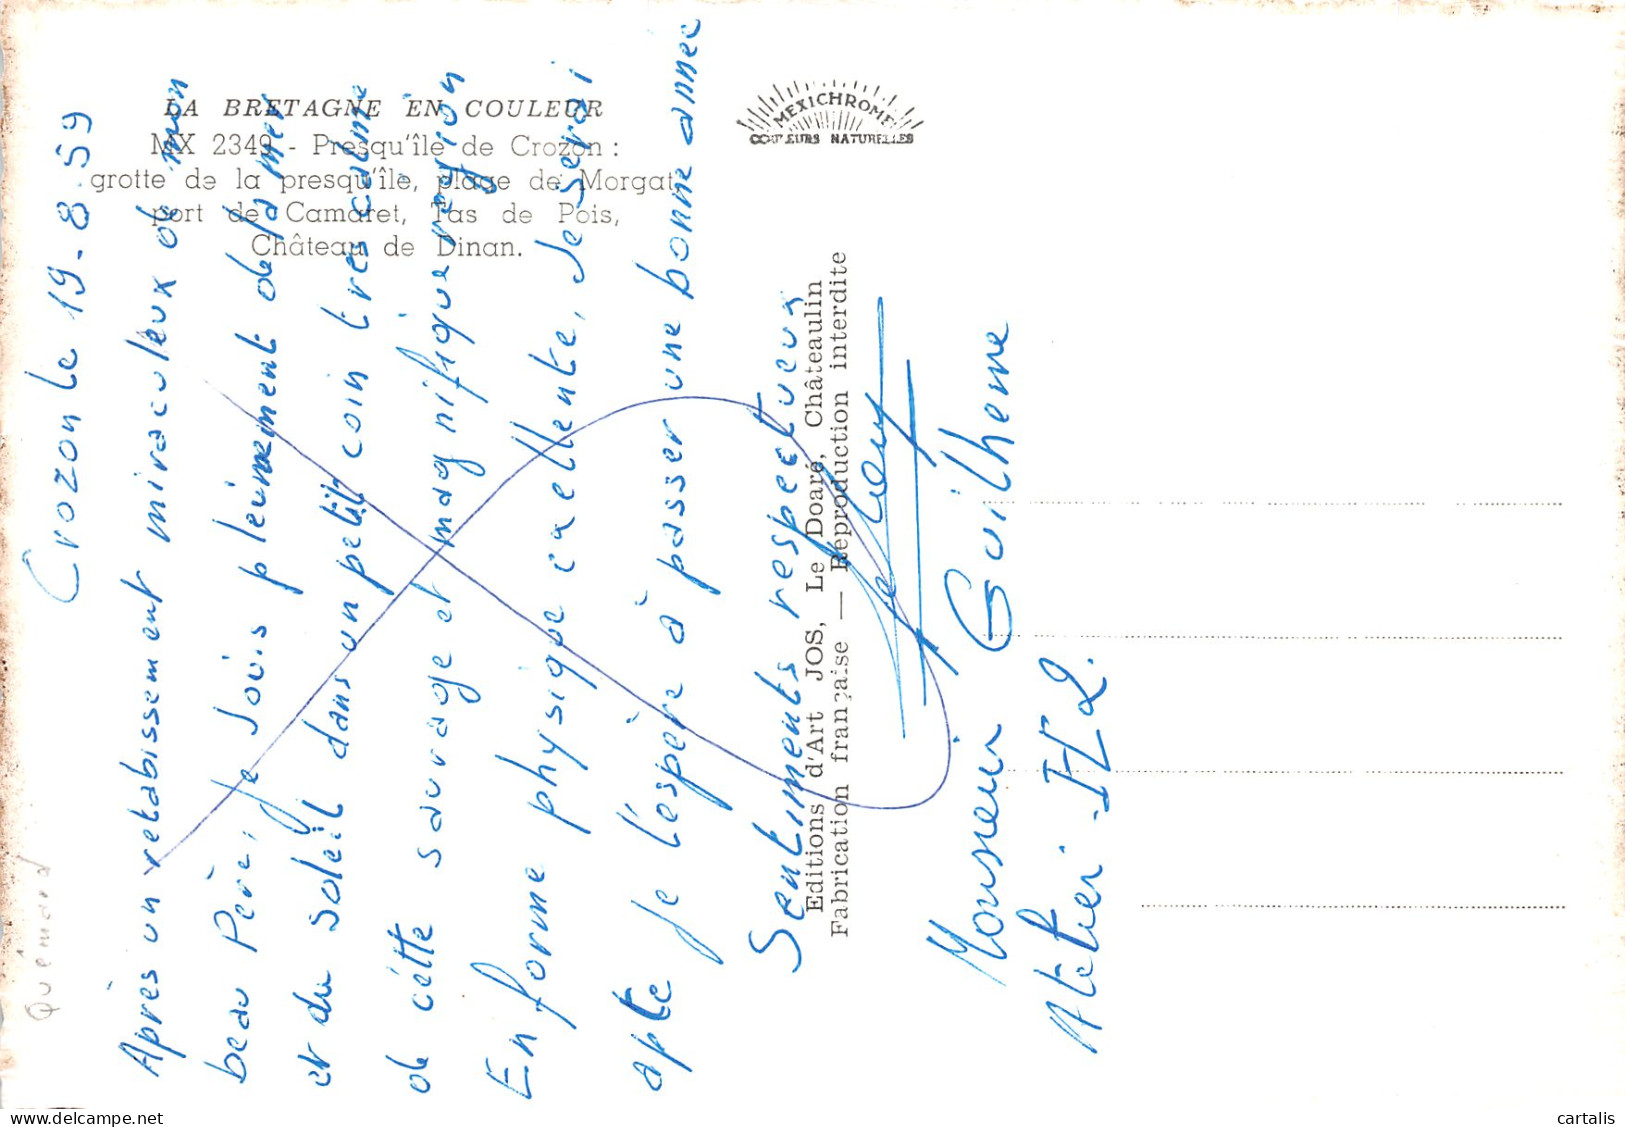 LA BRETAGNE EN COULEUR
MX 2349 - Presqu'île de Crozon :
grotte de la presqu'île, plage de Morgat,
port de Camaret, Tas de Pois,
Château de Dinan.
MEXICHROME
COULEURS NATURELLES
Editions d'Art JOS, Le Doaré, Châteaulin
Fabrication française — Réproduction interdite
Crozon le 19-8.59
Après un retabissement miraculeux de mon
beau Père, je Jouis pleinement de la mer
et du soleil dans un petit coin très calme
de cette sauvage et magnifique région
En forme physique excellente, Je Serai
apte je l'espère à passer une bonne année
Sentiments respectueux
Monsieur Guilheme
Atelier H2.
Quémard
www.delcampe.net
cartalis